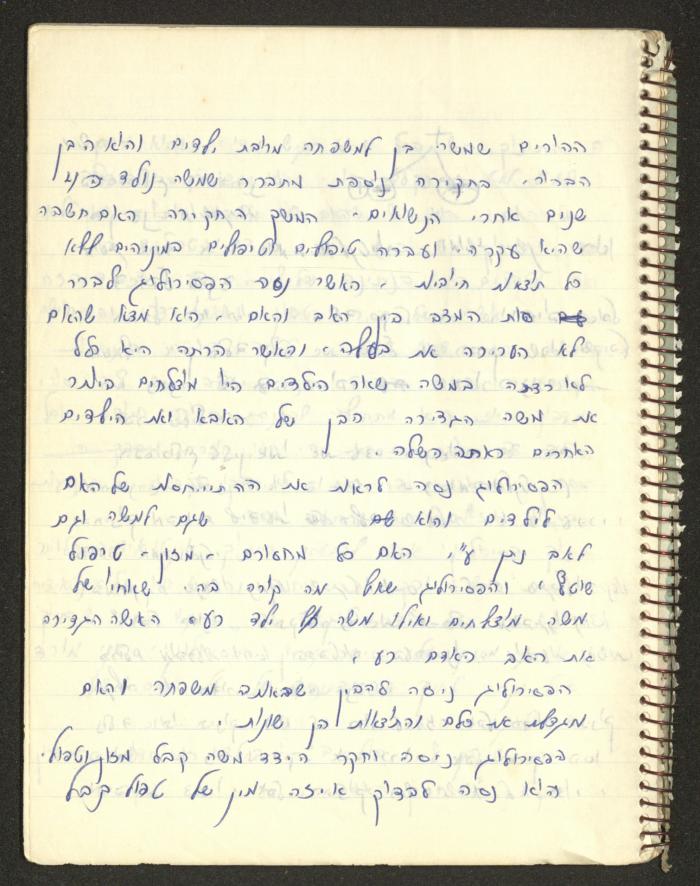 ההורים שמשה בן למשפחה מרובת ילדים והוא הבן
הבכור. בחקירה נוספת מתברר שמשה נולד
שנים אחרי הנשואים. המשך החקירה האם חשבה
שהיא עקרה ועברה טיפולים וטיפולים במינהם ללא
כל תוצאות חיוביות. כאשר נסה הפסיכולוג לברר
את המצב בין האב והאם. הוא מצא שהאם
לא העריכה את בעלה. וכאשר הרתה היא כלל
לא רצתה במשה שאר הילדים היו מוצלחים ביותר
את משה הגדירה הבן של האבא ואת הילדים
האחרים כאתה שלה.
הפסיכולוג נסה לראות את ההתייחסות של האם
לילדים והוא שגם למשה וגם
לאב נתן ע"י האם כל מחסורם. מזון. טיפול
שוטף. והפסיכולוג שאל מה קורה בה שאחיו של
משה מוצלחים ואילו משה ילד רע. האשה הגדירה
את האב האדם רע.
הפסיכולוג ניסה להבין שבאותה משפחה והאם
מגדלת את כלם והתוצאות הן שונות.
הפסיכולוג ניסה וחקר הילד משה קבל מזון וטפול.
והוא נסה לבדוק איזה מין של טפול קבל